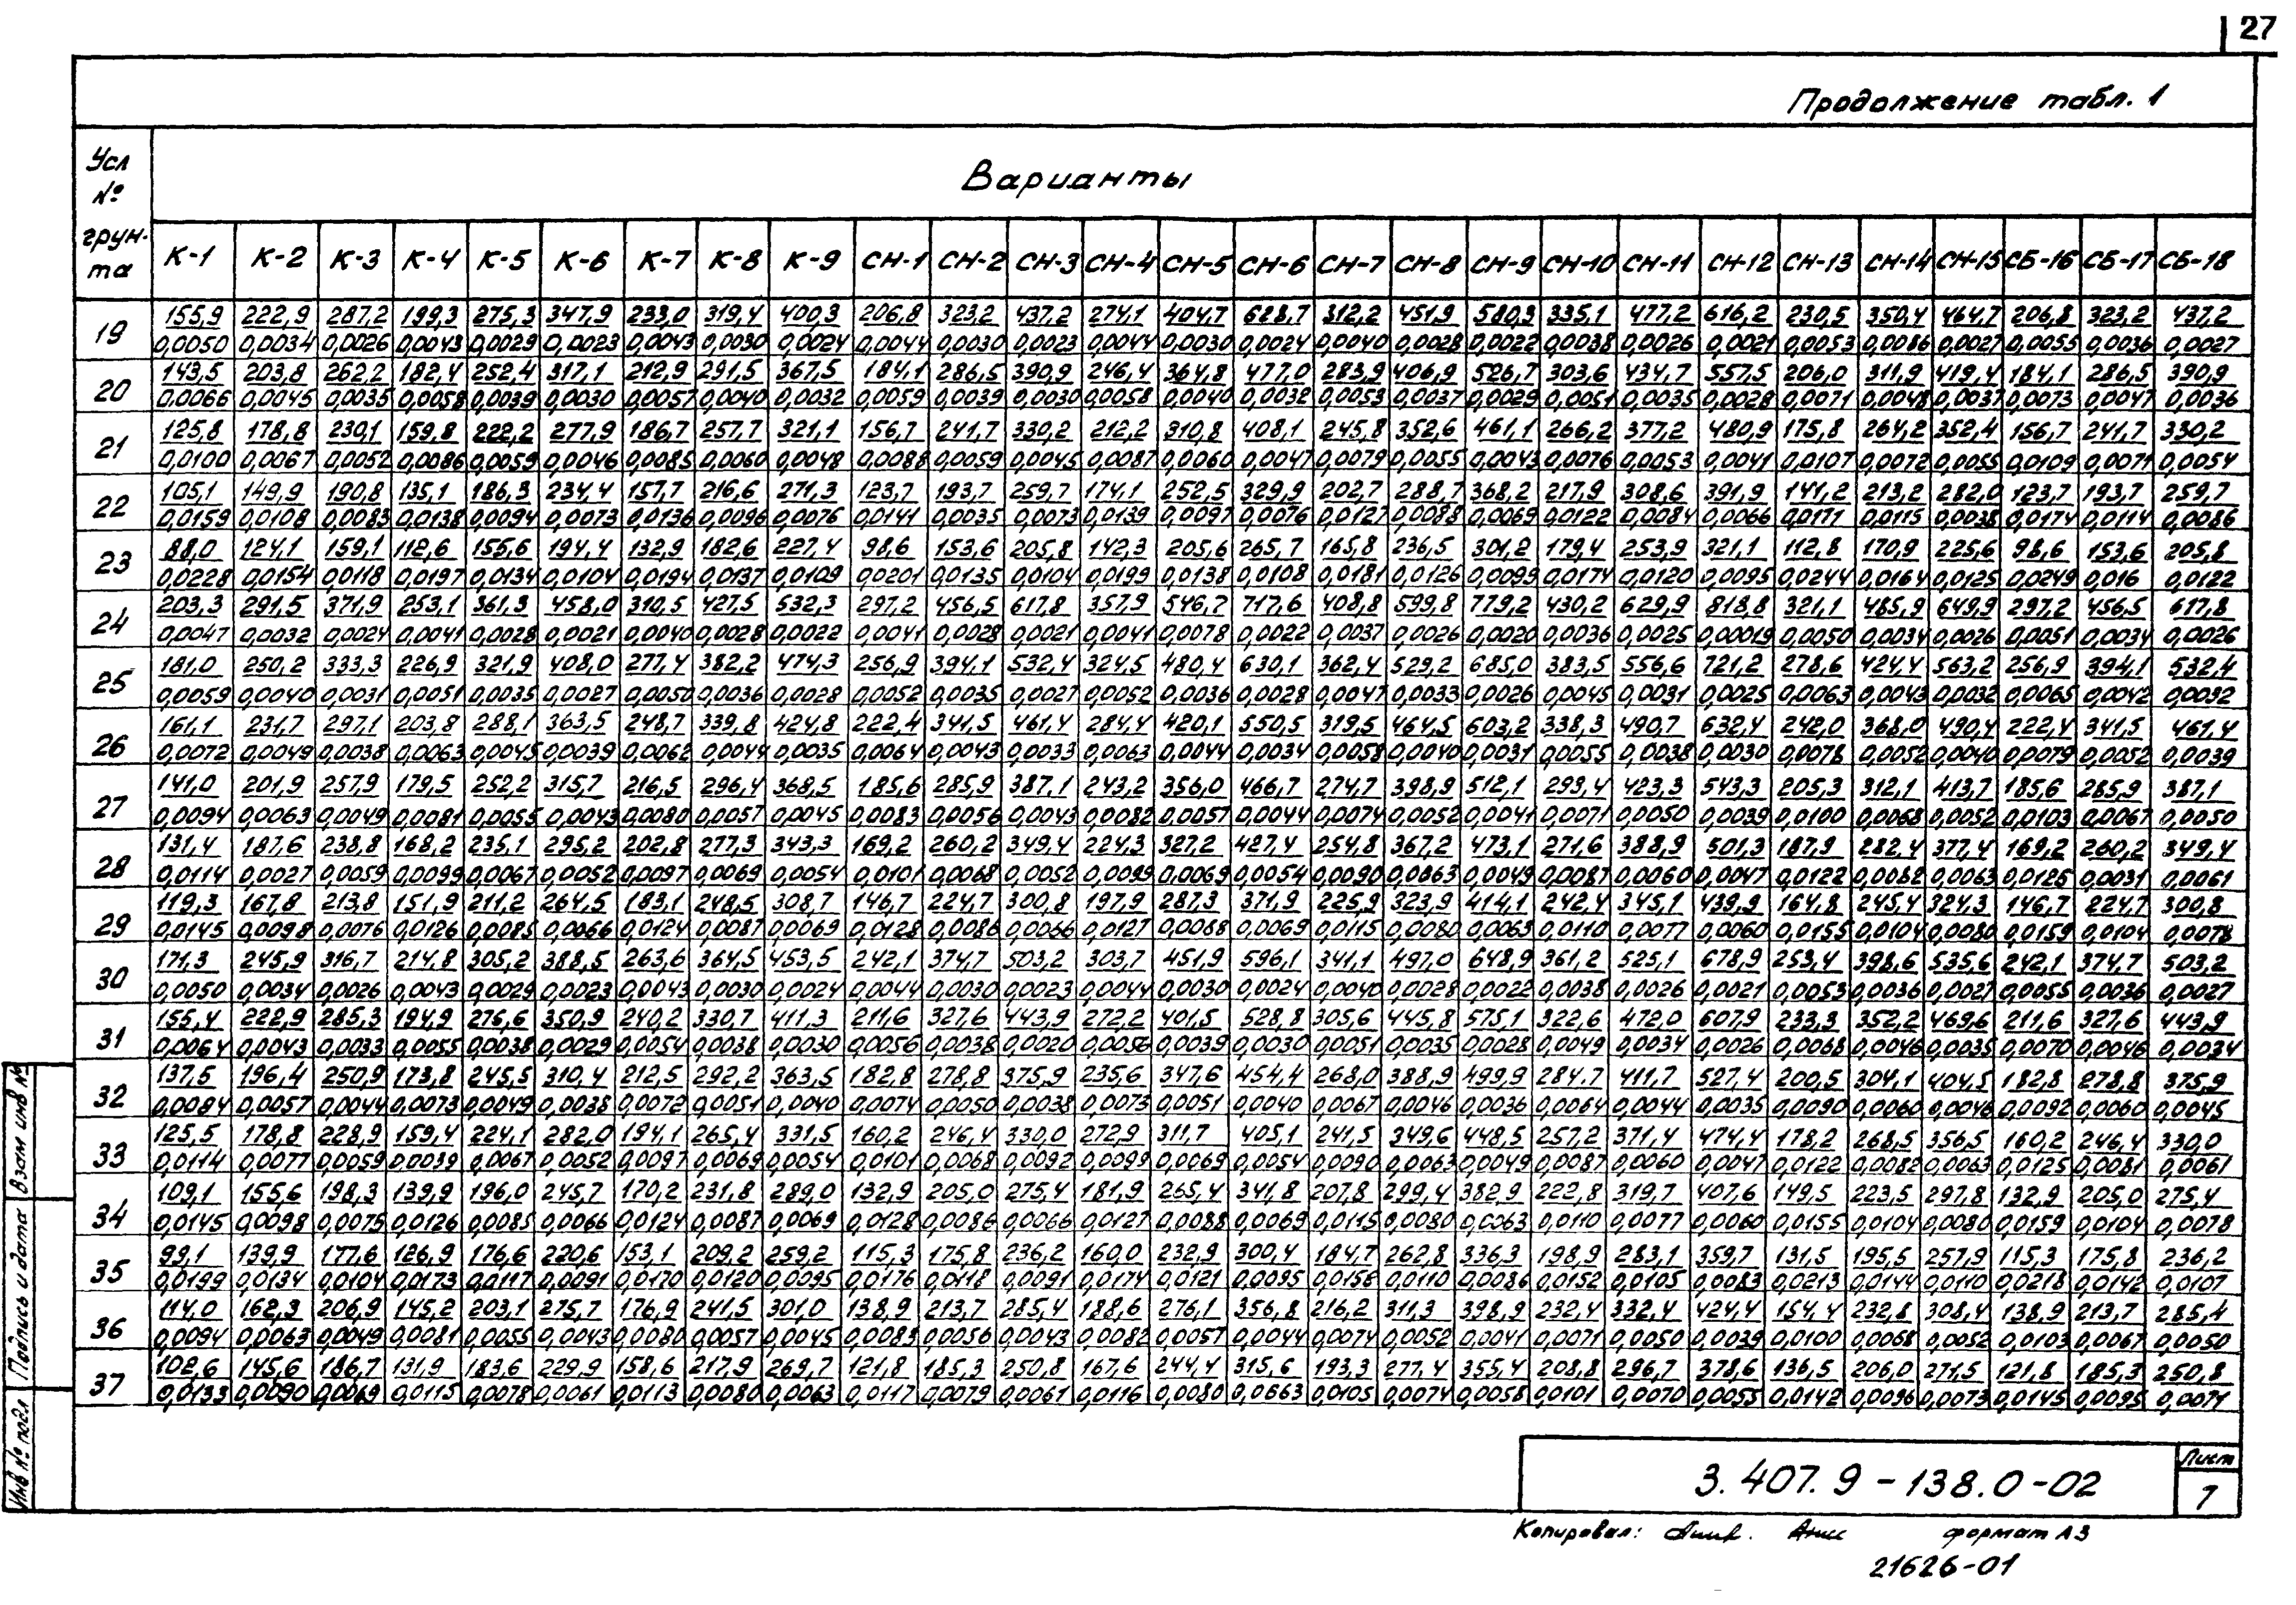 27
Продолжение табл. 1
Усл № грун-та
Варианты
К-1 К-2 К-3 К-4 К-5 К-6 К-7 К-8 К-9 СН-1 СН-2 СН-3 СН-4 СН-5 СН-6 СН-7 СН-8 СН-9 СН-10 СН-11 СН-12 СН-13 СН-14 СН-15 СБ-16 СБ-17 СБ-18
19 155,9 222,9 287,2 199,3 275,3 347,9 233,0 319,4 400,3 206,8 323,2 437,2 274,1 404,7 628,7 312,2 451,9 580,3 335,1 477,2 616,2 230,5 350,4 464,7 206,8 323,2 437,2
0,0050 0,0034 0,0026 0,0043 0,0029 0,0023 0,0043 0,0030 0,0024 0,0044 0,0030 0,0023 0,0044 0,0030 0,0024 0,0040 0,0028 0,0022 0,0038 0,0026 0,0021 0,0053 0,0086 0,0027 0,0055 0,0036 0,0027
20 143,5 203,8 262,2 182,4 252,4 317,1 212,9 291,5 367,5 184,1 286,5 390,9 246,4 364,8 477,0 283,9 406,9 526,7 303,6 434,7 557,5 206,0 311,9 419,4 184,1 286,5 390,9
0,0066 0,0045 0,0035 0,0058 0,0039 0,0030 0,0057 0,0040 0,0032 0,0059 0,0039 0,0030 0,0058 0,0040 0,0032 0,0053 0,0037 0,0029 0,0051 0,0035 0,0028 0,0071 0,0048 0,0037 0,0073 0,0047 0,0036
21 125,8 178,8 230,1 159,8 222,2 277,9 186,7 257,7 321,1 156,7 241,7 330,2 212,2 310,8 408,1 245,8 352,6 461,1 266,2 377,2 480,9 175,8 264,2 352,4 156,7 241,7 330,2
0,0100 0,0067 0,0052 0,0086 0,0059 0,0046 0,0085 0,0060 0,0048 0,0088 0,0059 0,0045 0,0087 0,0060 0,0047 0,0079 0,0055 0,0043 0,0076 0,0053 0,0041 0,0107 0,0072 0,0055 0,0109 0,0071 0,0054
22 105,1 149,9 190,8 135,1 186,3 234,4 157,7 216,6 271,3 123,7 193,7 259,7 174,1 252,5 329,9 202,7 288,7 368,2 217,9 308,6 391,9 141,2 213,2 282,0 123,7 193,7 259,7
0,0159 0,0108 0,0083 0,0138 0,0094 0,0073 0,0136 0,0096 0,0076 0,0141 0,0035 0,0073 0,0139 0,0097 0,0076 0,0127 0,0088 0,0069 0,0122 0,0084 0,0066 0,0171 0,0115 0,0038 0,0174 0,0114 0,0086
23 88,0 124,1 159,1 112,6 155,6 194,4 132,9 182,6 227,4 98,6 153,6 205,8 142,3 205,6 265,7 165,8 236,5 301,2 179,4 253,9 321,1 112,8 170,9 225,6 98,6 153,6 205,8
0,0228 0,0154 0,0118 0,0197 0,0134 0,0104 0,0194 0,0137 0,0109 0,0201 0,0135 0,0104 0,0199 0,0138 0,0108 0,0181 0,0126 0,0099 0,0174 0,0120 0,0095 0,0244 0,0164 0,0125 0,0249 0,016 0,0122
24 203,3 291,5 371,9 253,1 361,3 458,0 310,5 427,5 532,3 297,2 456,5 617,8 357,9 546,7 717,6 408,8 599,8 779,2 430,2 629,9 818,8 321,1 485,9 649,9 297,2 456,5 617,8
0,0047 0,0032 0,0024 0,0041 0,0028 0,0021 0,0040 0,0028 0,0022 0,0041 0,0028 0,0021 0,0041 0,0078 0,0022 0,0037 0,0026 0,0020 0,0036 0,0025 0,00019 0,0050 0,0034 0,0026 0,0051 0,0034 0,0026
25 181,0 250,2 333,3 226,9 321,9 408,0 277,4 382,2 474,3 256,9 394,1 532,4 324,5 480,4 630,1 362,4 529,2 685,0 383,5 556,6 721,2 278,6 424,4 563,2 256,9 394,1 532,4
0,0059 0,0040 0,0031 0,0051 0,0035 0,0027 0,0050 0,0036 0,0028 0,0052 0,0035 0,0027 0,0052 0,0036 0,0028 0,0047 0,0033 0,0026 0,0045 0,0031 0,0025 0,0063 0,0043 0,0032 0,0065 0,0042 0,0032
26 161,1 231,7 297,1 203,8 288,1 363,5 248,7 339,8 424,8 222,4 341,5 461,4 284,4 420,1 550,5 319,5 464,5 603,2 338,3 490,7 632,4 242,0 368,0 490,4 222,4 341,5 461,4
0,0072 0,0049 0,0038 0,0063 0,0045 0,0039 0,0062 0,0044 0,0035 0,0064 0,0043 0,0033 0,0063 0,0044 0,0034 0,0058 0,0040 0,0031 0,0055 0,0038 0,0030 0,0078 0,0052 0,0040 0,0079 0,0052 0,0039
27 141,0 201,9 257,9 179,5 252,2 315,7 216,5 296,4 368,5 185,6 285,9 387,1 243,2 356,0 466,7 274,7 398,9 512,1 293,4 423,3 543,3 205,3 312,1 413,7 185,6 285,9 387,1
0,0094 0,0063 0,0049 0,0081 0,0055 0,0043 0,0080 0,0057 0,0045 0,0083 0,0056 0,0043 0,0082 0,0057 0,0044 0,0074 0,0052 0,0041 0,0071 0,0050 0,0039 0,0100 0,0068 0,0052 0,0103 0,0067 0,0050
28 131,4 187,6 238,8 168,2 235,1 295,2 202,8 277,3 343,3 169,2 260,2 349,4 224,3 327,2 427,4 254,8 367,2 473,1 271,6 388,9 501,3 187,9 282,4 377,4 169,2 260,2 349,4
0,0114 0,0027 0,0059 0,0099 0,0067 0,0052 0,0097 0,0069 0,0054 0,0101 0,0068 0,0052 0,0099 0,0069 0,0054 0,0090 0,0863 0,0049 0,0087 0,0060 0,0047 0,0122 0,0082 0,0063 0,0125 0,0031 0,0061
29 119,3 167,8 213,8 151,9 211,2 264,5 183,1 248,5 308,7 146,7 224,7 300,8 197,9 287,3 371,9 225,9 323,9 414,1 242,4 345,1 439,9 164,8 245,4 324,3 146,7 224,7 300,8
0,0145 0,0098 0,0076 0,0126 0,0085 0,0066 0,0124 0,0087 0,0069 0,0128 0,0086 0,0066 0,0127 0,0088 0,0069 0,0115 0,0080 0,0063 0,0110 0,0077 0,0060 0,0155 0,0104 0,0080 0,0159 0,0104 0,0078
30 171,3 245,9 316,7 214,8 305,2 388,5 263,6 364,5 453,5 242,1 374,7 503,2 303,7 451,9 596,1 341,1 497,0 648,9 361,2 525,1 678,9 253,4 398,6 535,6 242,1 374,7 503,2
0,0050 0,0034 0,0026 0,0043 0,0029 0,0023 0,0043 0,0030 0,0024 0,0044 0,0030 0,0023 0,0044 0,0030 0,0024 0,0040 0,0028 0,0022 0,0038 0,0026 0,0021 0,0053 0,0036 0,0027 0,0055 0,0036 0,0027
31 155,4 222,9 285,3 194,9 276,6 350,9 240,2 330,7 411,3 211,6 327,6 443,9 272,2 401,5 528,8 305,6 445,8 575,1 322,6 472,0 607,9 233,3 352,2 469,6 211,6 327,6 443,9
0,0064 0,0043 0,0033 0,0055 0,0038 0,0029 0,0054 0,0038 0,0030 0,0056 0,0038 0,0020 0,0056 0,0039 0,0030 0,0051 0,0035 0,0028 0,0049 0,0034 0,0026 0,0068 0,0046 0,0035 0,0070 0,0046 0,0034
32 137,5 196,4 250,9 173,8 245,5 310,4 212,5 292,2 363,5 182,8 278,8 375,9 235,6 347,6 454,4 268,0 388,9 499,9 284,7 411,7 527,4 200,5 304,1 404,5 182,8 278,8 375,9
0,0084 0,0057 0,0044 0,0073 0,0049 0,0038 0,0072 0,0051 0,0040 0,0074 0,0050 0,0038 0,0073 0,0051 0,0040 0,0067 0,0046 0,0036 0,0064 0,0044 0,0035 0,0090 0,0060 0,0046 0,0092 0,0060 0,0045
33 125,5 178,8 228,9 159,4 224,1 282,0 194,1 265,4 331,5 160,2 246,4 330,0 272,9 311,7 405,1 241,5 349,6 448,5 257,2 371,4 474,4 178,2 268,5 356,5 160,2 246,4 330,0
0,0114 0,0077 0,0059 0,0039 0,0067 0,0052 0,0097 0,0069 0,0054 0,0101 0,0068 0,0092 0,0099 0,0069 0,0054 0,0090 0,0063 0,0049 0,0087 0,0060 0,0047 0,0122 0,0082 0,0063 0,0125 0,0081 0,0061
34 109,1 155,6 198,3 139,9 196,0 245,7 170,2 231,8 289,0 132,9 205,0 275,4 181,9 265,4 341,8 207,8 299,4 382,9 222,8 319,7 407,6 149,5 223,5 297,8 132,9 205,0 275,4
0,0145 0,0098 0,0075 0,0126 0,0085 0,0066 0,0124 0,0087 0,0069 0,0128 0,0086 0,0066 0,0127 0,0088 0,0069 0,0115 0,0080 0,0063 0,0110 0,0077 0,0060 0,0155 0,0104 0,0080 0,0159 0,0104 0,0078
35 99,1 139,9 177,6 126,9 176,6 220,6 153,1 209,2 259,2 115,3 175,8 236,2 160,0 232,9 300,4 184,7 262,8 336,3 198,9 283,1 359,7 131,5 195,5 257,9 115,3 175,8 236,2
0,0199 0,0134 0,0104 0,0173 0,0117 0,0091 0,0170 0,0120 0,0095 0,0176 0,0118 0,0091 0,0174 0,0121 0,0095 0,0158 0,0110 0,0086 0,0152 0,0105 0,0083 0,0213 0,0144 0,0110 0,0218 0,0142 0,0107
36 114,0 162,3 206,9 145,2 203,1 275,7 176,9 241,5 301,0 138,9 213,7 285,4 188,6 276,1 356,8 216,2 311,3 398,9 232,4 332,4 424,4 154,4 232,8 308,4 138,9 213,7 285,4
0,0094 0,0063 0,0049 0,0081 0,0055 0,0043 0,0080 0,0057 0,0045 0,0083 0,0056 0,0043 0,0082 0,0057 0,0044 0,0074 0,0052 0,0041 0,0071 0,0050 0,0039 0,0100 0,0068 0,0052 0,0103 0,0067 0,0050
37 102,6 145,6 186,7 131,9 183,6 229,9 158,6 217,9 269,7 121,8 185,3 250,8 167,6 244,4 315,6 193,3 277,4 355,4 208,8 296,7 378,6 136,5 206,0 271,5 121,8 185,3 250,8
0,0133 0,0090 0,0069 0,0115 0,0078 0,0061 0,0113 0,0080 0,0063 0,0117 0,0079 0,0061 0,0116 0,0080 0,0663 0,0105 0,0074 0,0058 0,0101 0,0070 0,0055 0,0142 0,0096 0,0073 0,0145 0,0095 0,0071
Взам инв №
Подпись и дата
Инв № подл
3.407.9-138.0-02
Лист
7
Копировал: формат А3
21626-01